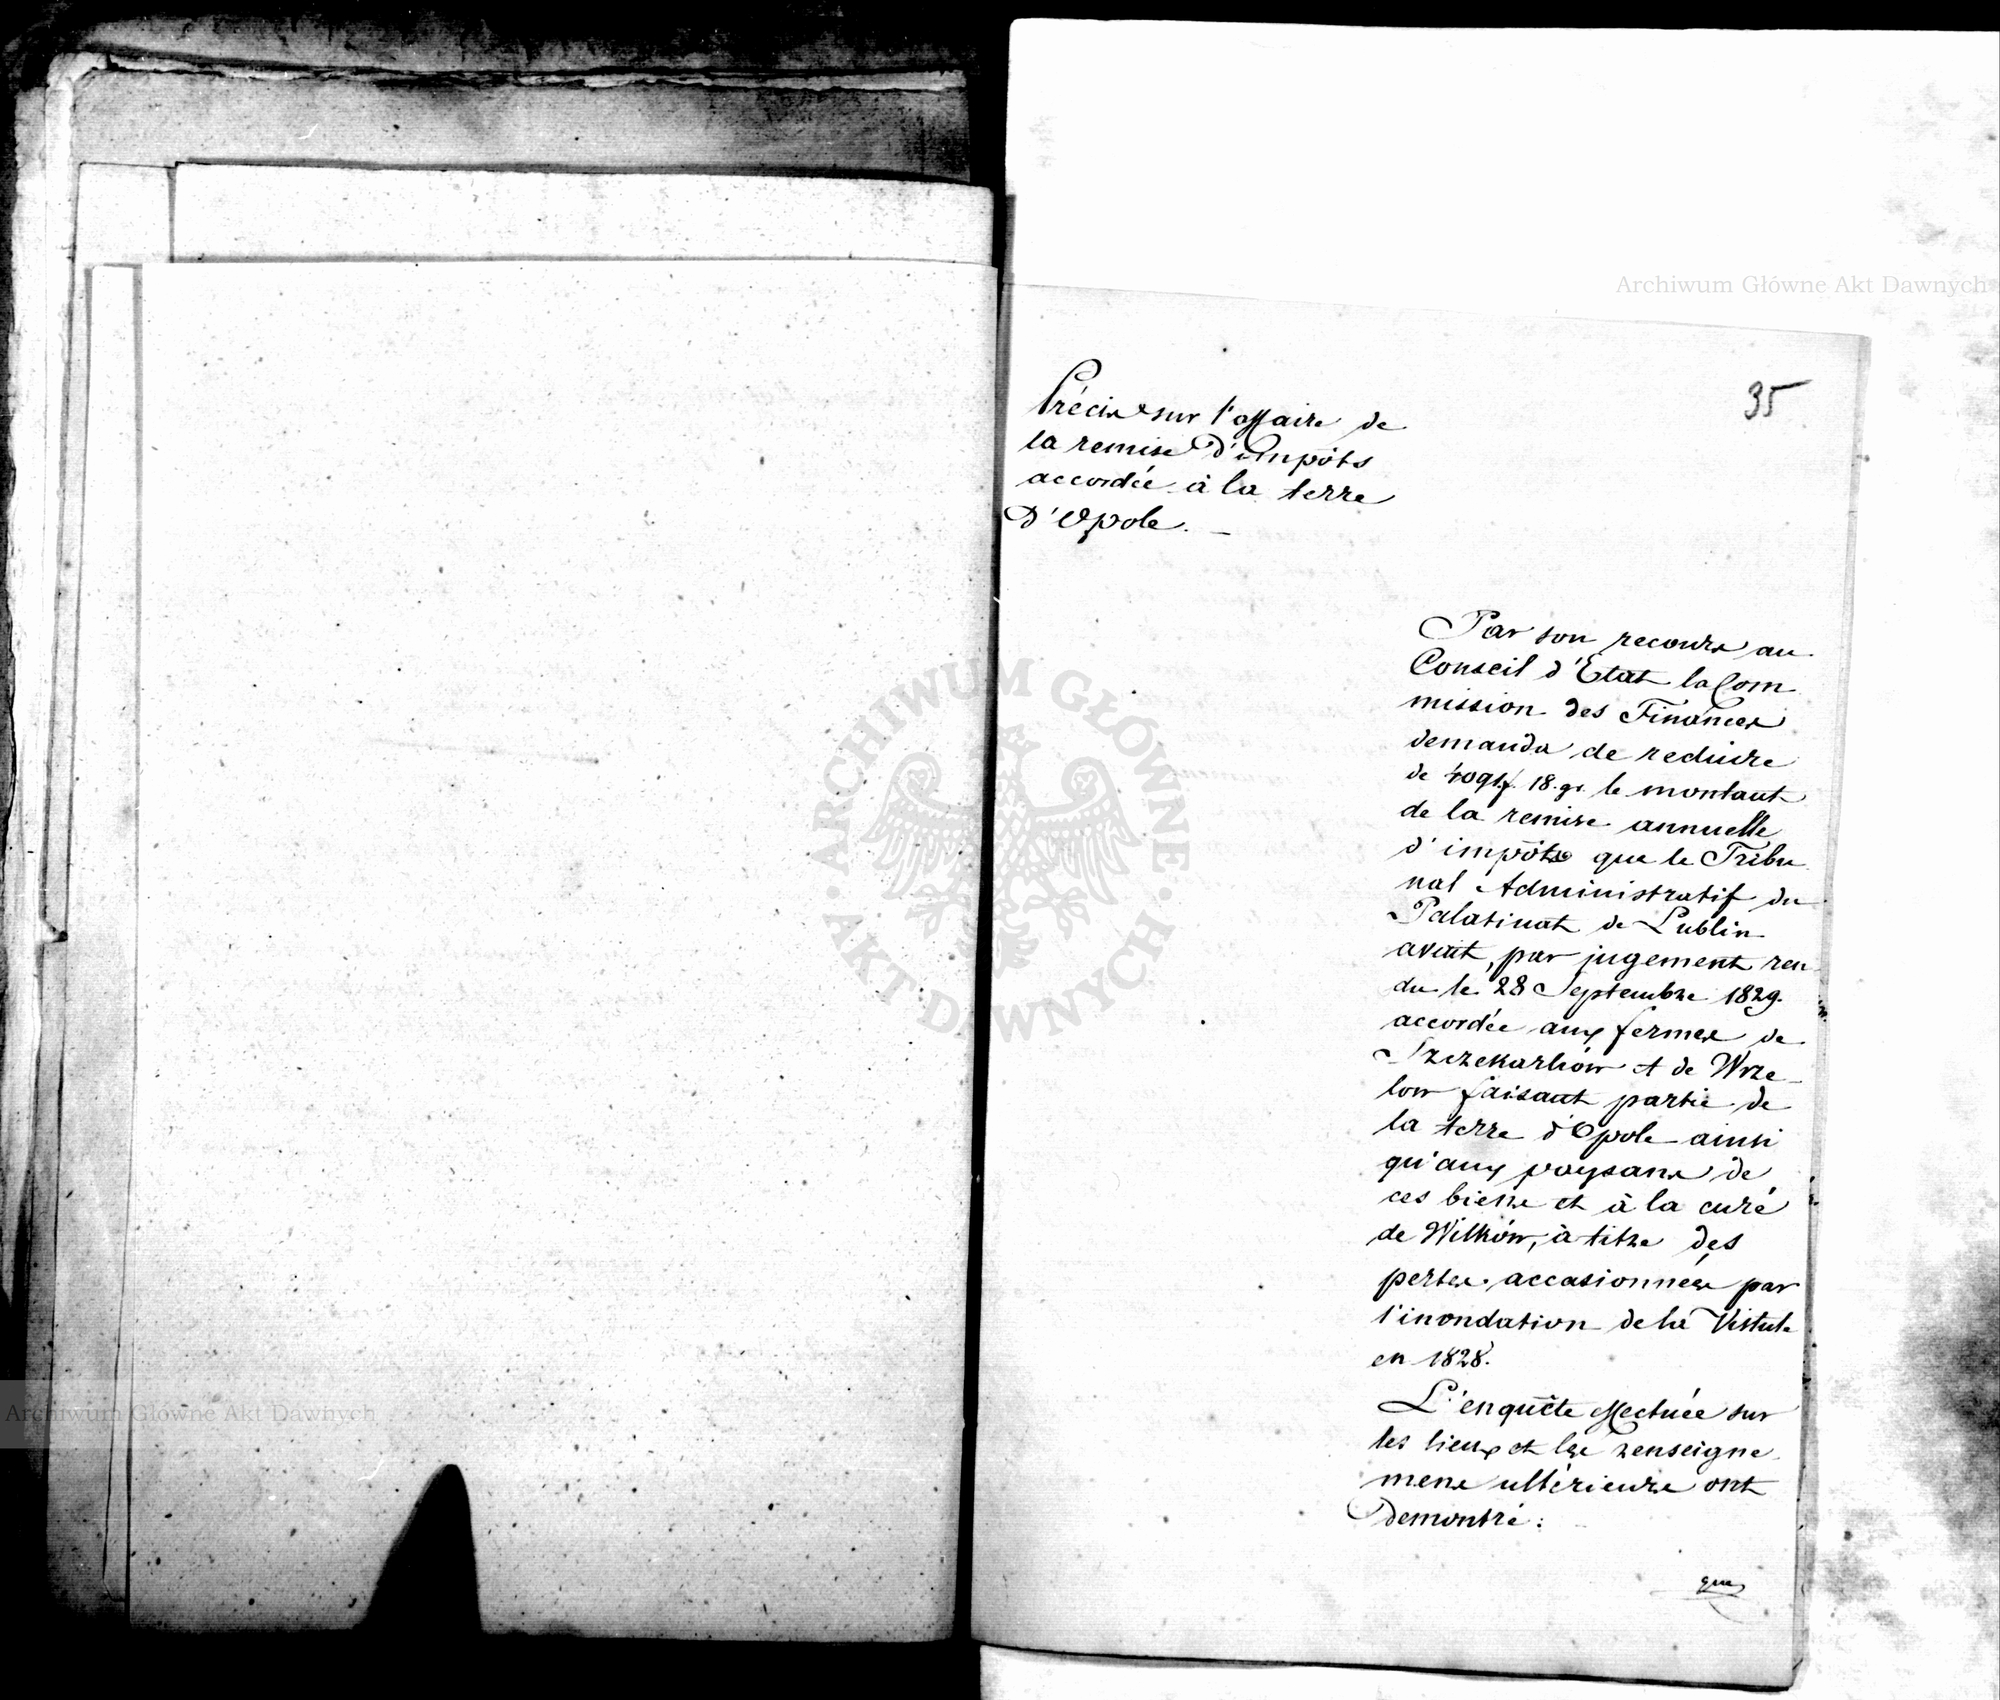 35
Précis sur l'affaire de
la remise d'impôts
accordée à la terre
d'Opole. —
Par son recours au
Conseil d'Etat la Com
mission des Finances
demanda de reduire
de 4091 f. 18. gr. le montant
de la remise annuelle
d'impôts que le Tribu
nal Administratif du
Palatinat de Lublin
avait, par jugement ren
du le 28 Septembre 1829.
accordée aux fermes de
Szczekarków et de Wrze
low faisant partie de
la terre d'Opole ainsi
qu'aux paysans de
ces biens et à la curé
de Wilków, à titre des
pertes accasionnées par
l'inondation de la Vistule
en 1828.
L'enquête effectuée sur
les lieux et les renseigne
mens ultérieurs ont
demontré :
que
Archiwum Główne Akt Dawnych
ARCHIWUM GŁÓWNE · AKT DAWNYCH ·
Archiwum Główne Akt Dawnych